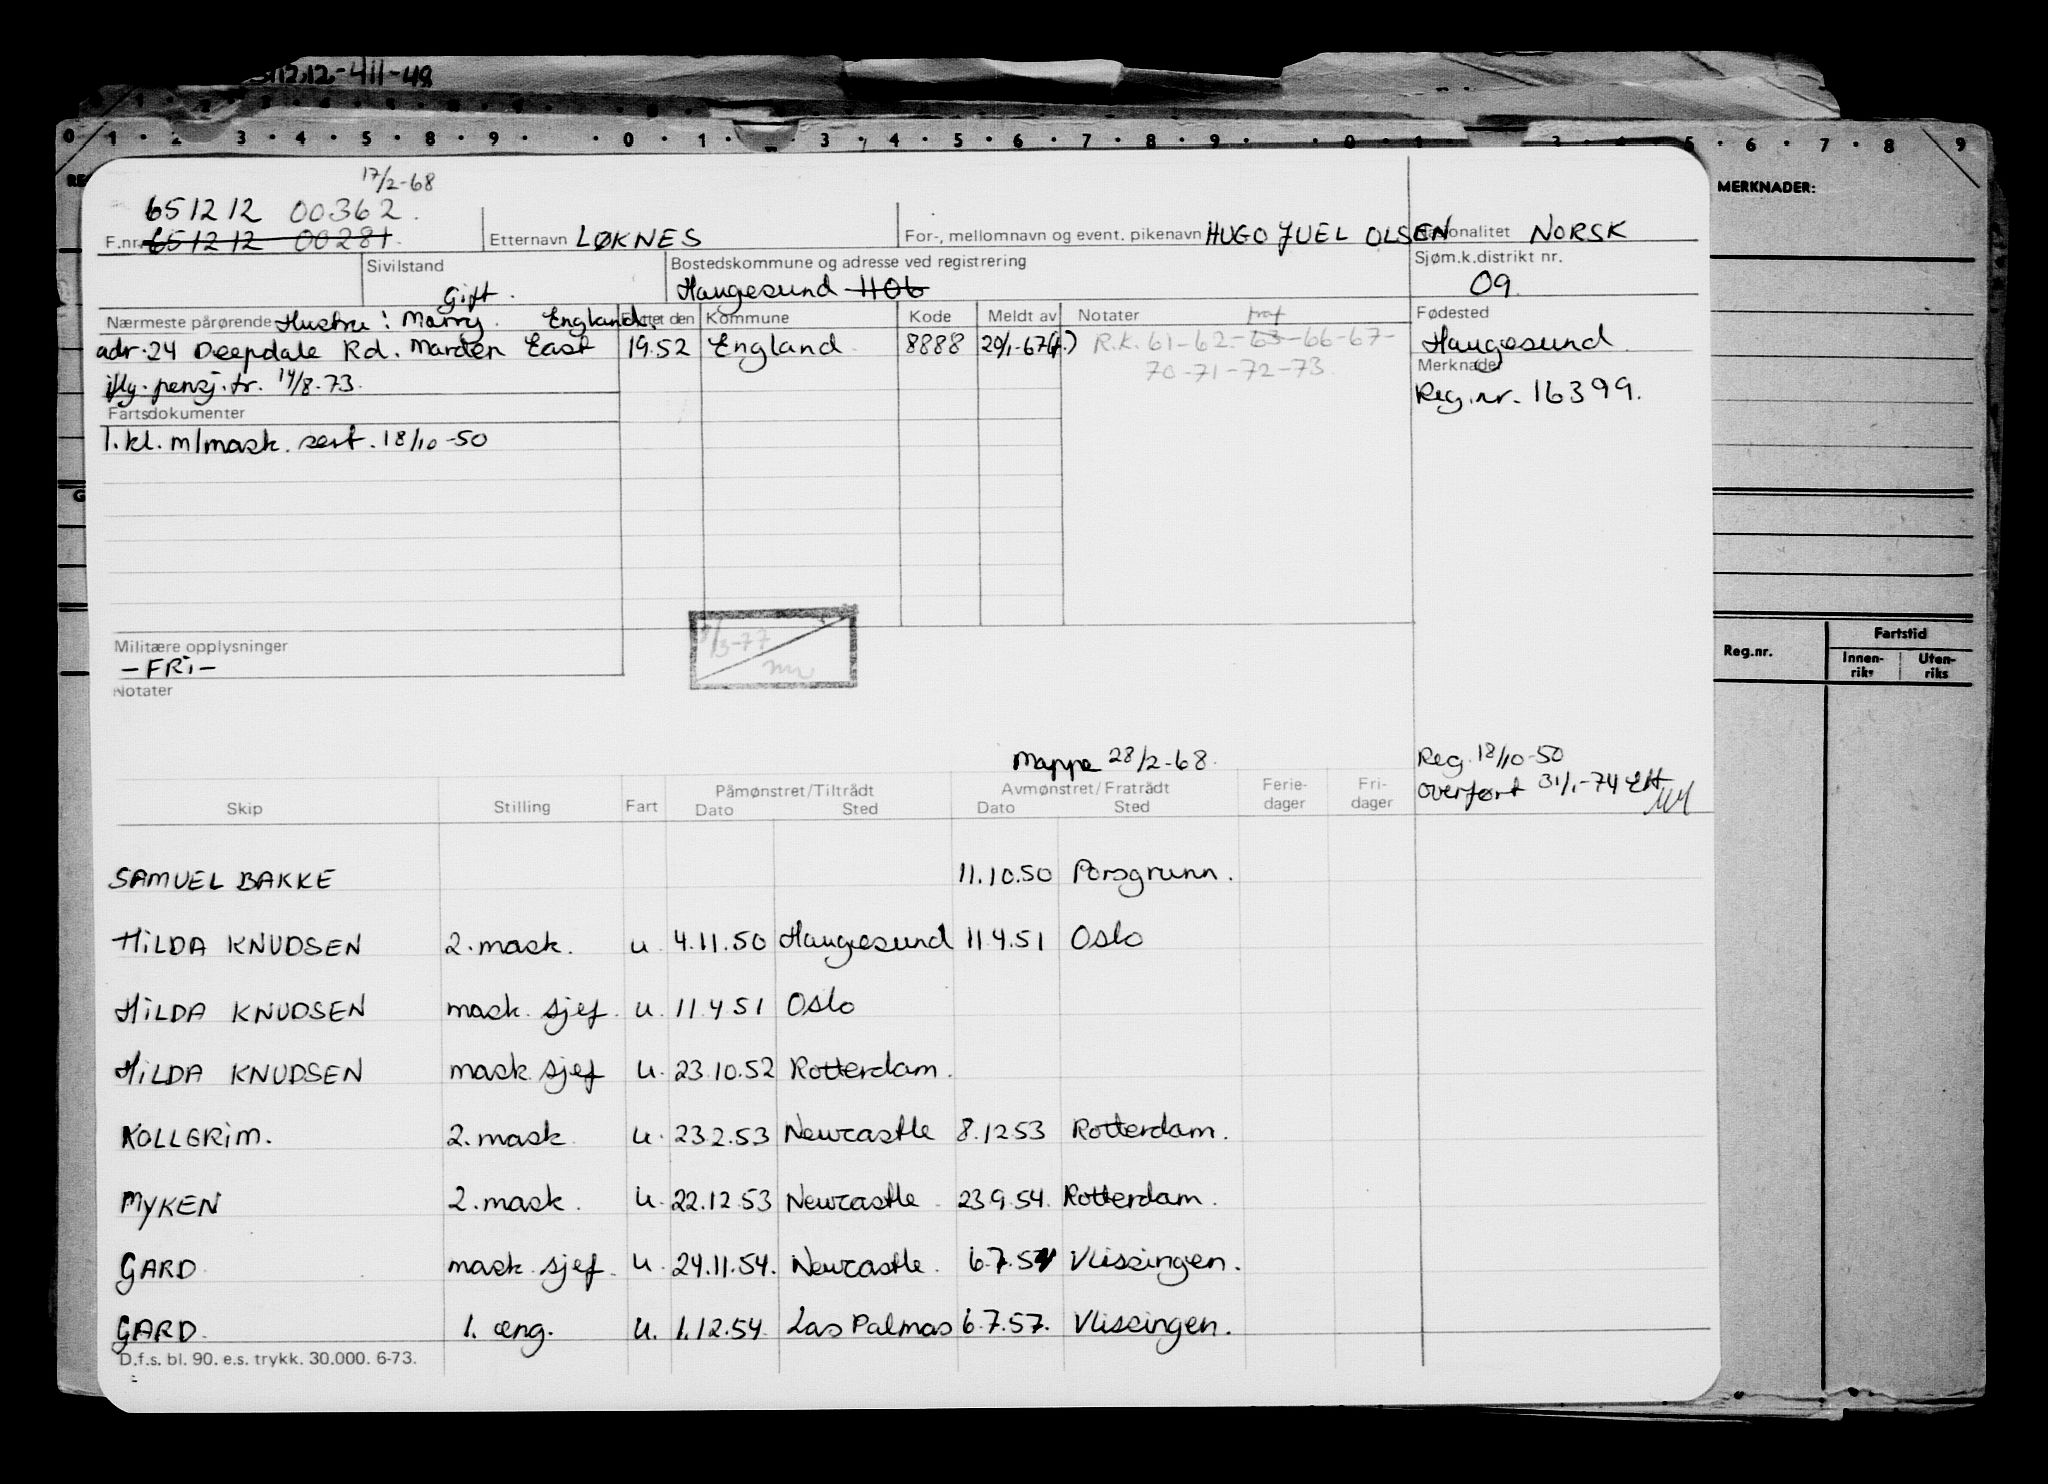 12.12-411-48
0 1 2 3 4 5 8 9 0 1 3 4 5 6 7 8 9 0 1 3 4 5 6 7 8 9
MERKNADER:
17/2-68
651212 00362.
F.nr. 651212 00281.
Etternavn LØKNES
For-, mellomnavn og event. pikenavn HUGO JUEL OLSEN
Nasjonalitet NORSK
Sivilstand
Gift.
Bostedskommune og adresse ved registrering
Haugesund 1106
Sjøm.k.distrikt nr.
09.
Nærmeste pårørende Hustru: Marry. England.
adr. 24 Deepdale Rd. Marden East
iflg. pensj. tr. 14/8-73.
Flyttet den Kommune Kode Meldt av Notater
19.52 England. 8888 20/1-67
R.K. 61-62-63-66-67-
70-71-72-73.
Fødested
Haugesund.
Merknader
Reg.nr. 16399.
Fartsdokumenter
1. kl. m/mask. sert. 18/10-50
Militære opplysninger
-FRI-
Notater
/3-77
Reg.nr.
Fartstid
Innen-riks
Uten-riks
Mappe 28/2-68.
Reg. 18/10-50
overført 31/1-74
Skip Stilling Fart Påmønstret/Tiltrådt Dato Sted Avmønstret/Fratrådt Dato Sted Ferie-dager Fri-dager
SAMUEL BAKKE 11.10.50 Porsgrunn.
HILDA KNUDSEN 2. mask. u. 4.11.50 Haugesund 11.4.51 Oslo
HILDA KNUDSEN mask. sjef. u. 11.4.51 Oslo
HILDA KNUDSEN mask sjef u. 23.10.52 Rotterdam.
KOLLGRIM. 2. mask. u. 23.2.53 Newcastle 8.12.53 Rotterdam.
MYKEN 2. mask. u. 22.12.53 Newcastle. 23.9.54. Rotterdam.
GARD mask. sjef. u. 24.11.54. Newcastle. 6.7.57 Vlissingen.
GARD. 1. eng. u. 1.12.54. Las Palmas 6.7.57. Vlissingen.
D.f.s. bl. 90. e.s. trykk. 30.000. 6-73.